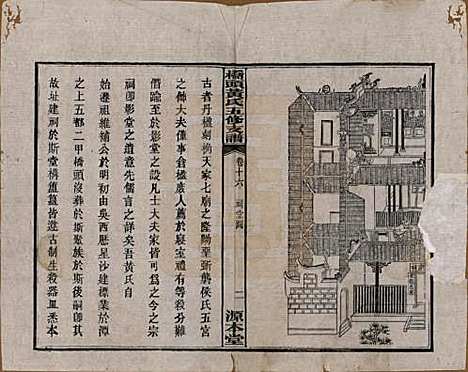 橋頭黃氏五修支譜
卷十六 祠堂圖
二
源本堂
古者丹楹刻桷天家七廟之隆陽罕斲礱侯氏五宮
之飾大夫僅事倉楹庶人薦於寢室禮有等殺分無
僭踰至於影堂之設凡士大夫家皆得為之今之宗
祠即影堂之遺意先儒言之詳矣吾黃氏自
始遷祖維輔公於明初由吳西歷星沙建標業於潭
之上五都二甲橋頭沒葬於斯聚族於斯後嗣即其
故址建祠於斯堂構簠簋皆遵古制生殺器皿悉本